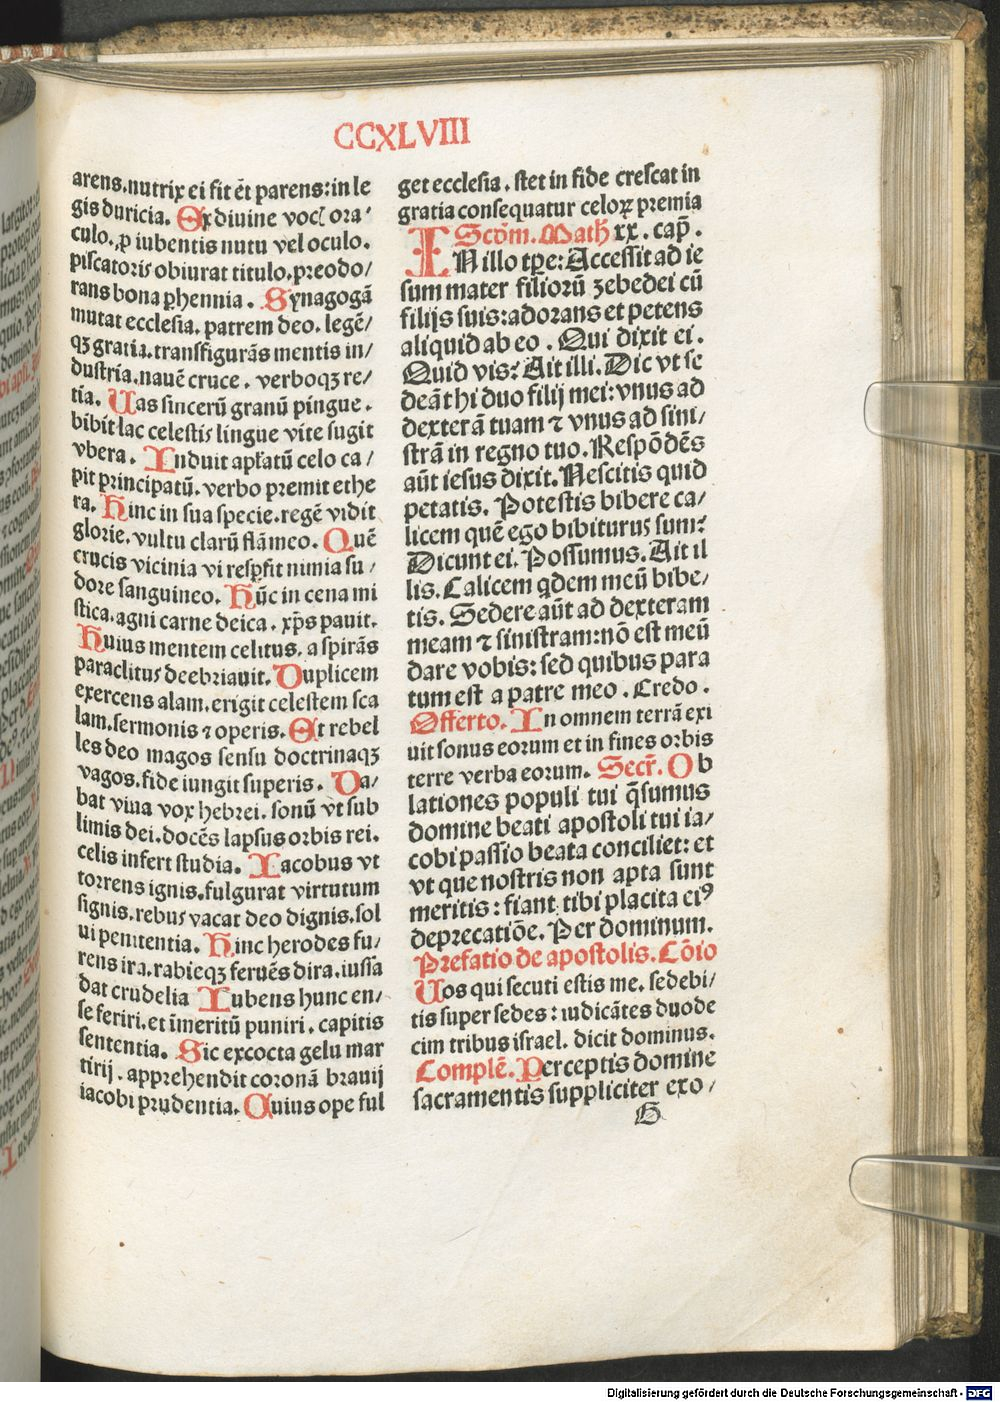 CCXLVIII
arens.nutrix ei fit et̄ parens:in le
gis duricia. Ex diuine voc̄ ora⸗
culo.ꝑ iubentis nutu vel oculo.
piscatoris obiurat titulo.preodo/
rans bona ꝑhennia. Synagogā
mutat ecclesia. patrem deo. legē/
qꝫ gratia.transfigurās mentis in/
dustria.nauē cruce. verboqꝫ re/
tia. Uas sincerū granū pingue.
bibit lac celestis lingue vite sugit
vbera. Induit apl̄atū celo ca/
pit principatū. verbo premit ethe
ra. Hinc in sua specie.regē vidit
glorie. vultu clarū flāmeo. Quē
crucis vicinia vi resꝑsit nimia su/
dore sanguineo. Hūc in cena mi
stica.agni carne deica. xp̄s pauit.
Huius mentem celitus. a spirās
paraclitus deebriauit. Duplicem
exercens alam.erigit celestem sca
lam.sermonis ⁊ operis. Et rebel
les deo magos sensu doctrinaqꝫ
vagos.fide iungit superis. Da/
bat viua vox hebrei. sonū vt sub
limis dei.docēs lapsus orbis rei.
celis infert studia. Iacobus vt
torrens ignis.fulgurat virtutum
signis.rebus vacat deo dignis.sol
ui penitentia. Hinc herodes fu/
rens ira.rabieqꝫ feruēs dira.iussa
dat crudelia Iubens hunc en/
se feriri.et īmeritū puniri. capitis
sententia. Sic excocta gelu mar
tirij. apprehendit coronā brauij
iacobi prudentia. Cuius ope ful
get ecclesia. stet in fide crescat in
gratia consequatur celoꝝ premia
Scd̄m. Math̄ xx. cap̄.
IN illo tꝑe: Accessit ad ie
sum mater filiorū zebedei cū
filijs suis:adorans et petens
aliquid ab eo. Qui dixit ei.
Quid vis? Ait illi. Dic vt se
deāt hi duo filij mei:vnus ad
dexterā tuam ⁊ vnus ad sini/
strā in regno tuo. Respōdēs
aūt iesus dixit. Nescitis quid
petatis. Potestis bibere ca/
licem quē ego bibiturus sum?
Dicunt ei. Possumus. Ait il
lis. Calicem qdem meū bibe/
tis. Sedere aūt ad dexteram
meam ⁊ sinistram:nō est meū
dare vobis: sed quibus para
tum est a patre meo. Credo.
Offerto. In omnem terrā exi
uit sonus eorum et in fines orbis
terre verba eorum. Secr̄. Ob
lationes populi tui q̄sumus
domine beati apostoli tui ia/
cobi passio beata conciliet: et
vt que nostris non apta sunt
meritis: fiant tibi placita eiꝰ
deprecatiōe. Per dominum.
Prefatio de apostolis. Cōio
Uos qui secuti estis me. sedebi/
tis super sedes: iudicātes duode
cim tribus israel. dicit dominus.
Complē. Perceptis domine
sacramentis suppliciter exo/
H
Digitalisierung gefördert durch die Deutsche Forschungsgemeinschaft - DFG